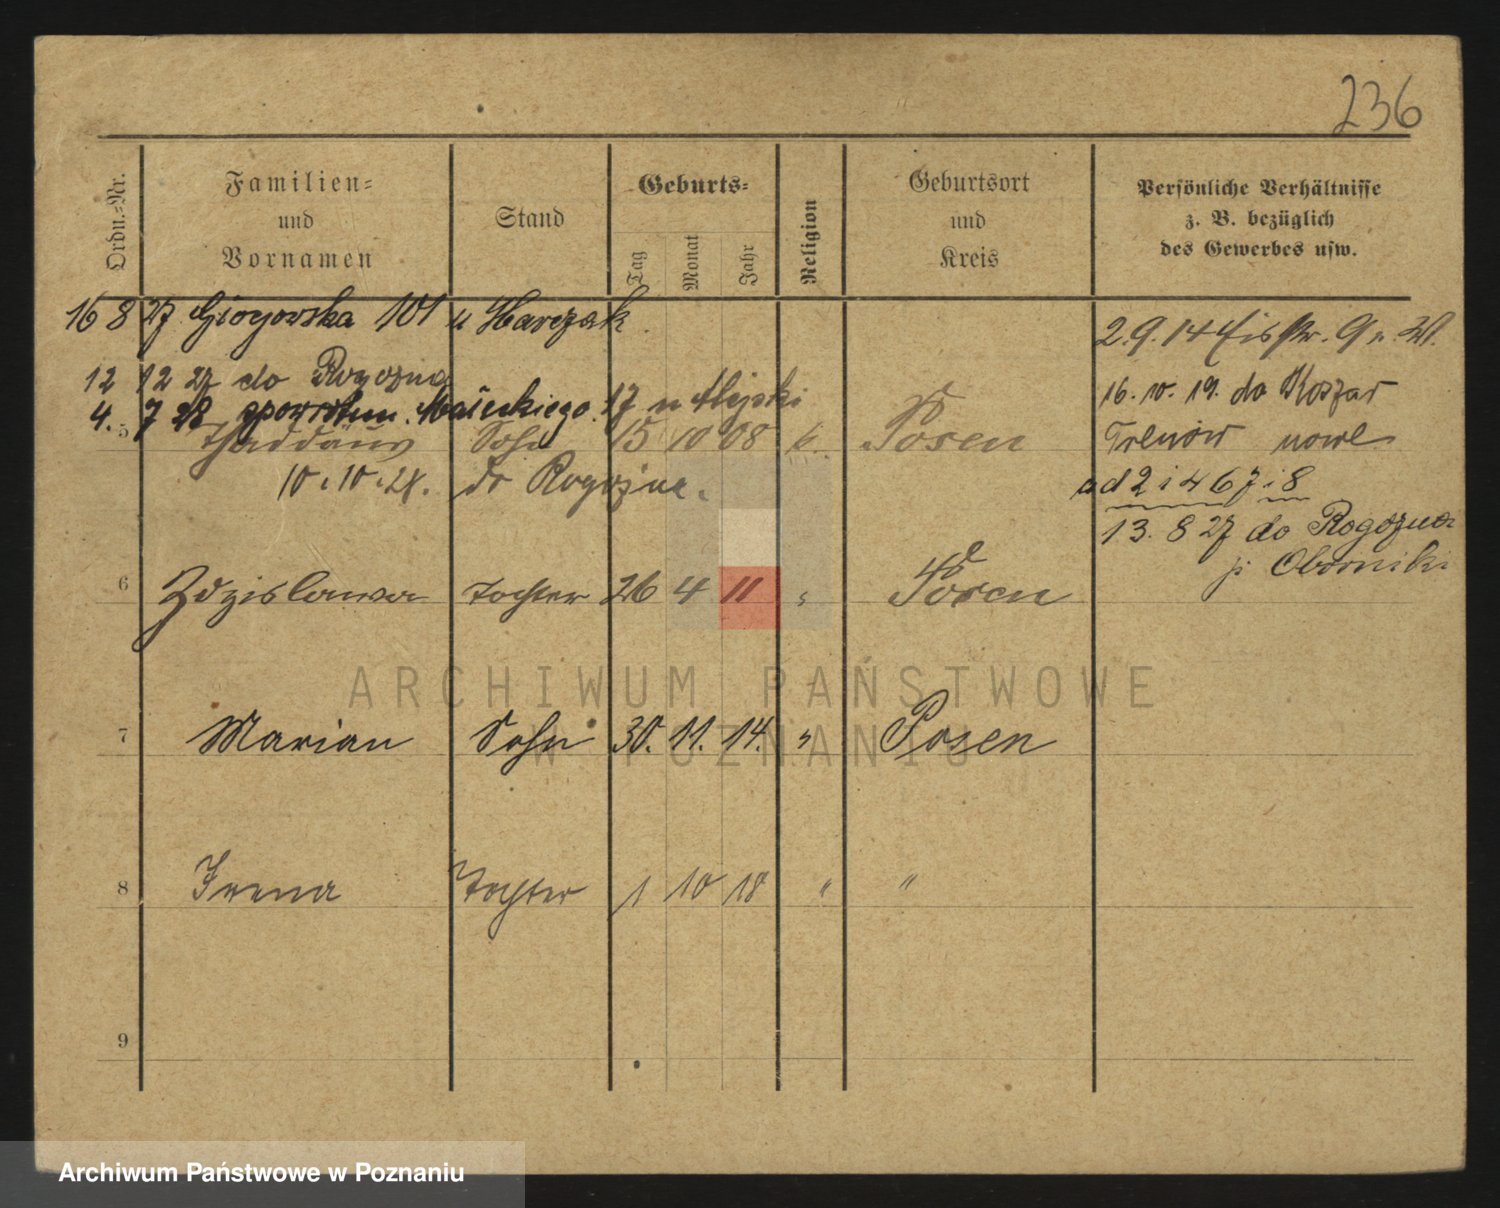 236
Ordn.-Nr.
Familien-
und
Vornamen
Stand
Geburts-
Tag
Monat
Jahr
Religion
Geburtsort
und
Kreis
Persönliche Verhältnisse
z. B. bezüglich
des Gewerbes usw.
16 8 27 101 u
12 12 27 do Rogozna
4. 7 28 Małeckiego 17 u
5 Thaddäus Sohn 15 10 08 k. Posen
10.10.28. do Rogozna.
6 Zdzislawa Tochter 26 4 11 " Posen
7 Marian Sohn 30. 11. 14. " Posen
8 Irena Tochter 1 10 18 " "
9
2.9.14
16.10.19. do Koszar
Trenów nowe
ad 2 i 4 6 7 i 8
13. 8 27 do Rogozna
p. Oborniki
ARCHIWUM PAŃSTWOWE
W POZNANIU
Archiwum Państwowe w Poznaniu